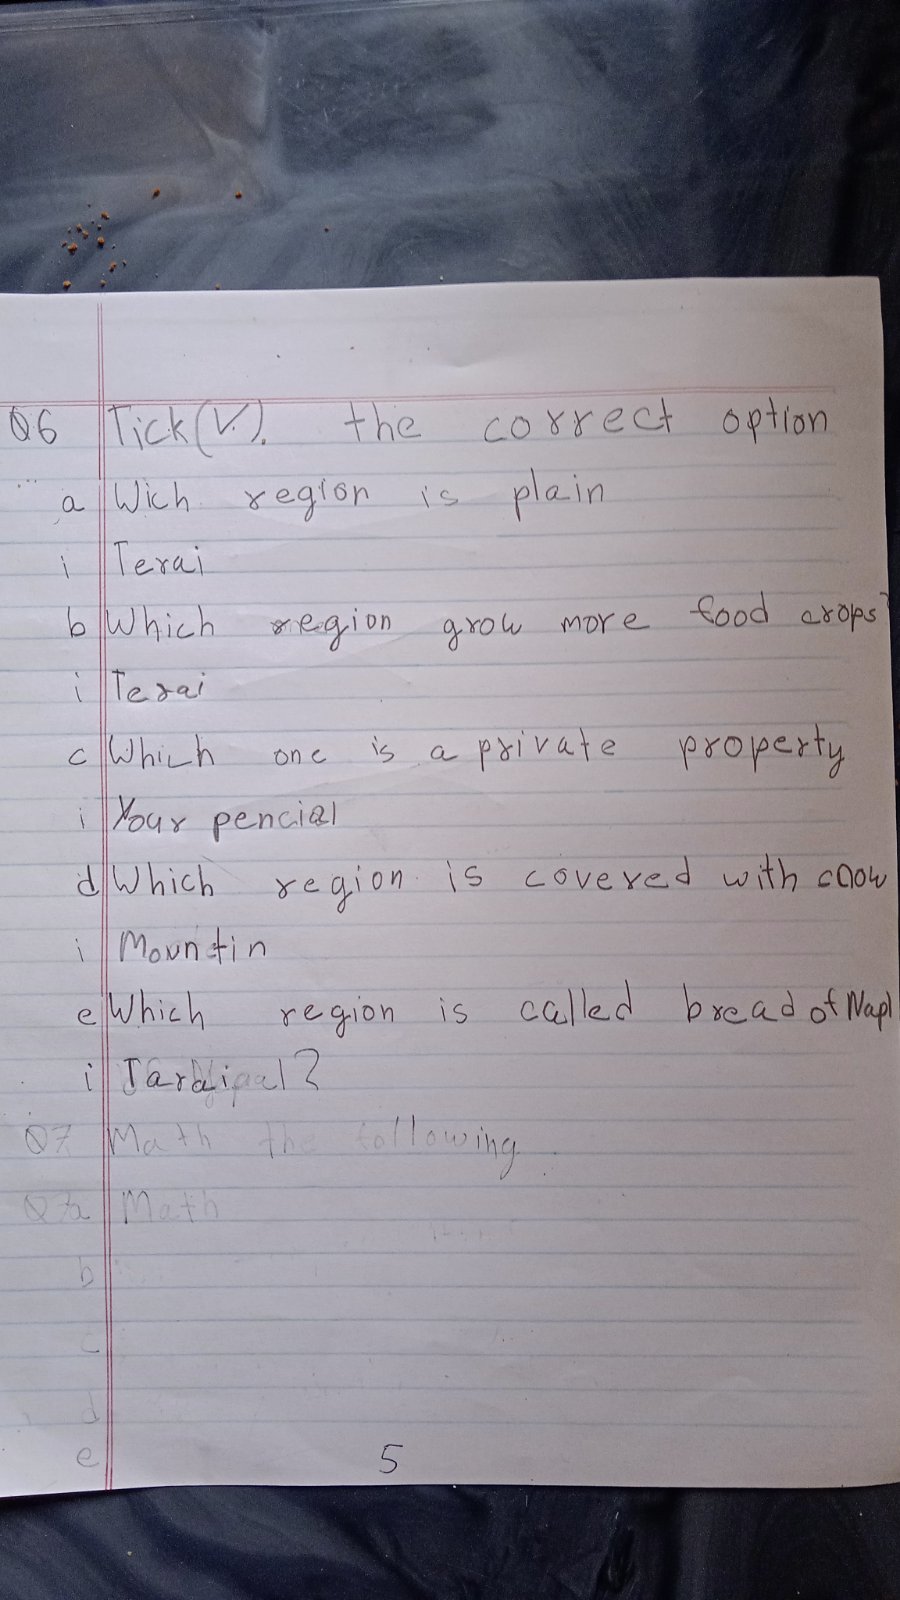 Q6 Tick(✓). the correct option
a Wich region is plain
i Terai
b Which region grow more food crops?
i Terai
c Which one is a private property
i Your pencial
d Which region is covered with cnow
i Mountin
e Which region is called bread of Napl
i
Q7 Math the following
Q7a Math
b
c
d
e
5